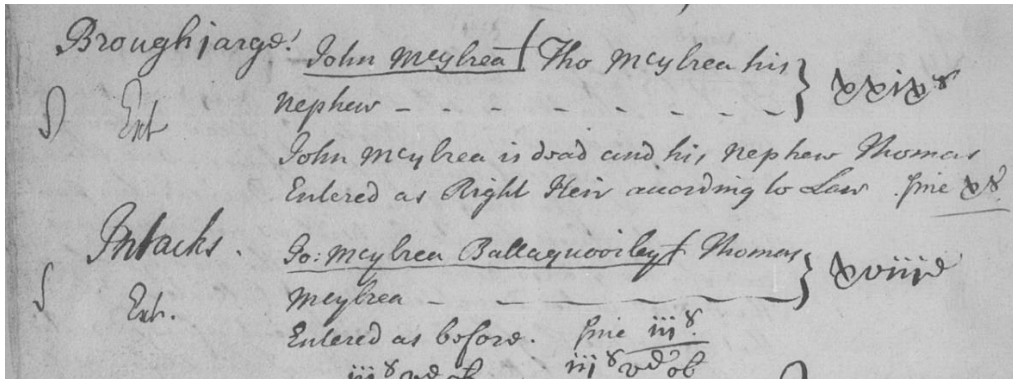 Broughjarge: John McYlrea Tho McYlrea his
nephew - - - - - - - } xxixs
Ent
John McYlrea is dead and his nephew Thomas
Entered as Right Heir according to Law fine xs.
Intacks. Jo: McYlrea Ballaquooiley Thomas
McYlrea - - - - - } xviijd
Ent.
Entered as before. fine iijs.
iijs vd ob iijs vd ob